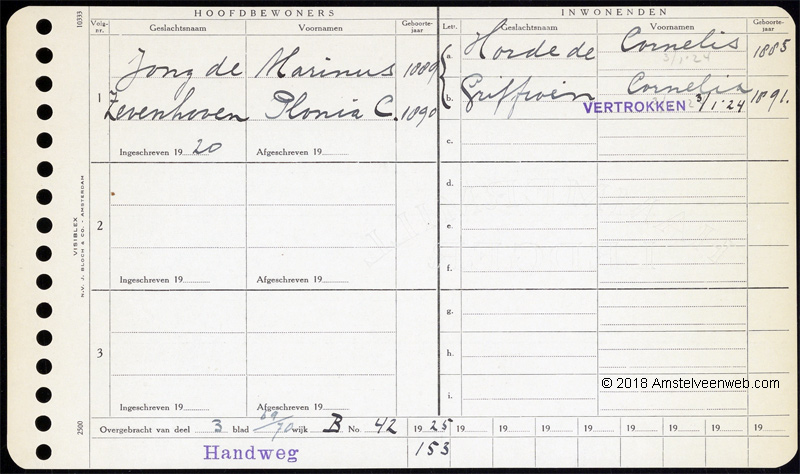 HOOFDBEWONERS
INWONENDEN
10333
Volg-nr.
Geslachtsnaam
Voornamen
Geboorte-jaar
Lett.
Geslachtsnaam
Voornamen
Geboorte-jaar
1
Jong de Marinus 1889
Zevenhoven Plonia C. 1890
Ingeschreven 19 20
Afgeschreven 19
a. Horde de Cornelis 1885
3/1'24
b. Griffioen Cornelia 1891.
VERTROKKEN 3/1'24
c.
2
Ingeschreven 19
Afgeschreven 19
d.
e.
f.
VISIBLEX
N.V. J. BLOCH & CO. - AMSTERDAM
3
Ingeschreven 19
Afgeschreven 19
g.
h.
i.
© 2018 Amstelveenweb.com
2500
Overgebracht van deel 3 blad 69/70 wijk B No. 42
19 25 19 19 19 19 19 19 19 19
Handweg
153